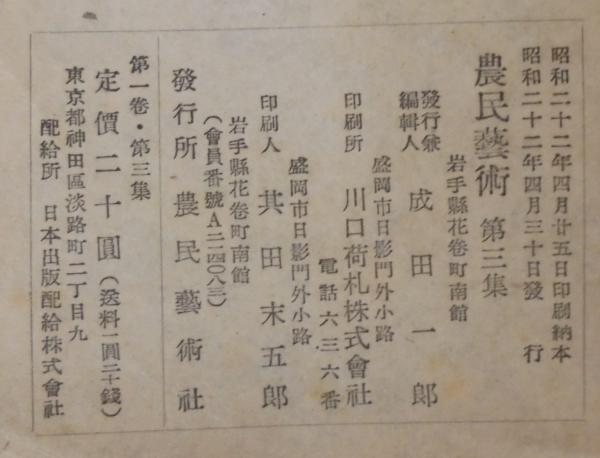 昭和二十二年四月廿五日印刷納本
昭和二十二年四月三十日發行
農民藝術 第三集
岩手縣花巻町南館
發行兼編輯人 成田一郎
盛岡市日影門外小路
印刷所 川口荷札株式會社
電話六三六番
盛岡市日影門外小路
印刷人 其田末五郎
岩手縣花巻町南館
(會員番號A二一四〇八三)
發行所 農民藝術社
第一卷・第三集
定價二十圓(送料一圓二十錢)
東京都神田區淡路町二丁目九
配給所 日本出版配給株式會社